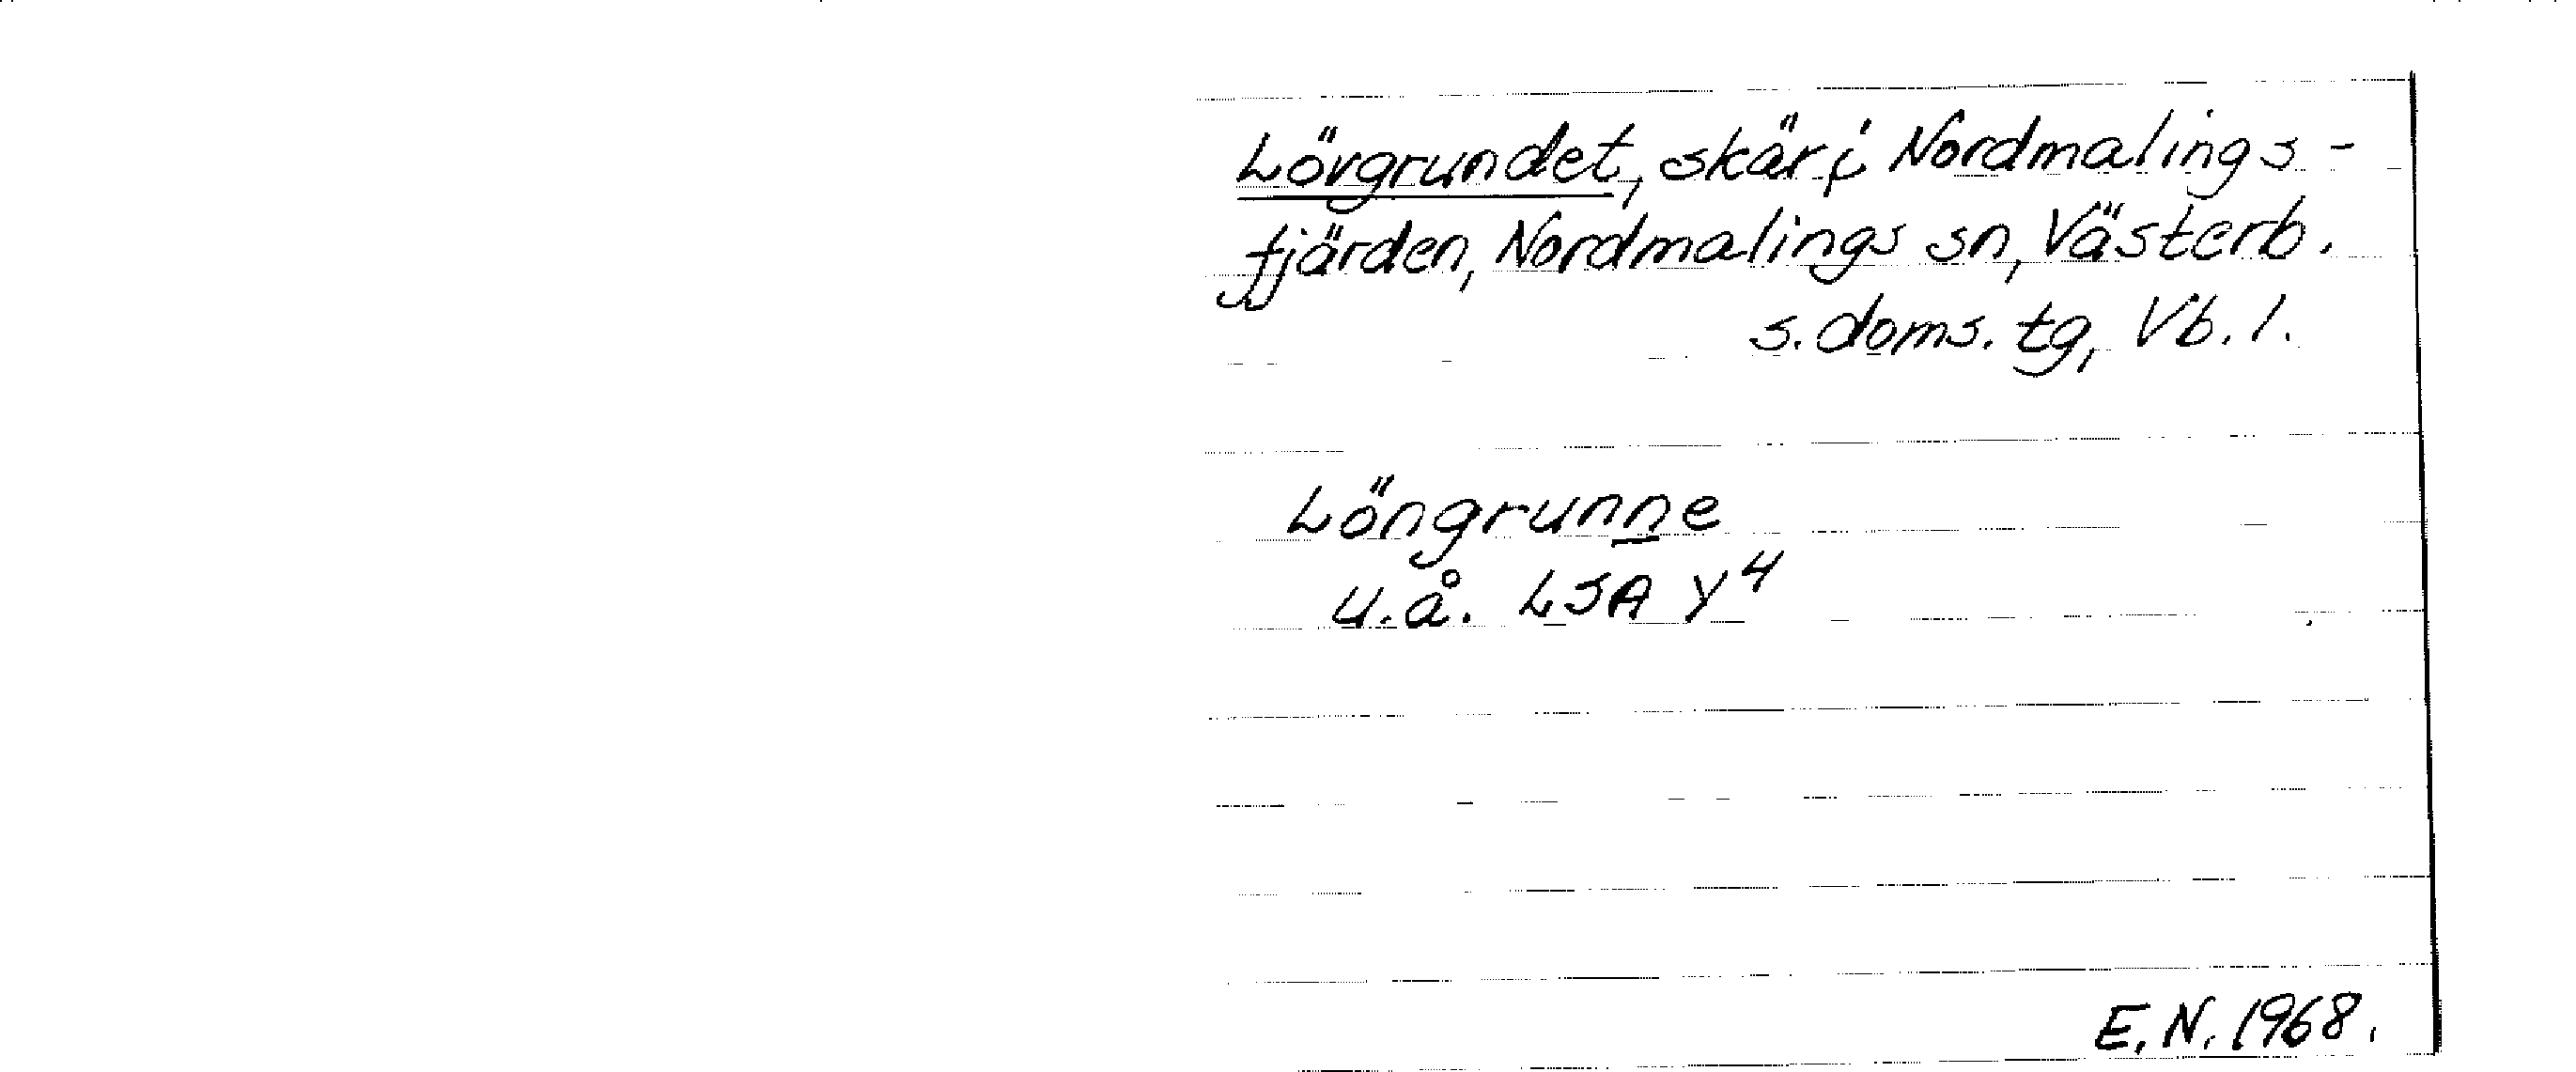 Lövgrundet, skär i Nordmalings-
fjärden, Nordmalings sn, Västerb.
s. doms. tg, Vb. l.
Löngrunne
u.å. LSA Y4
E.N. 1968.